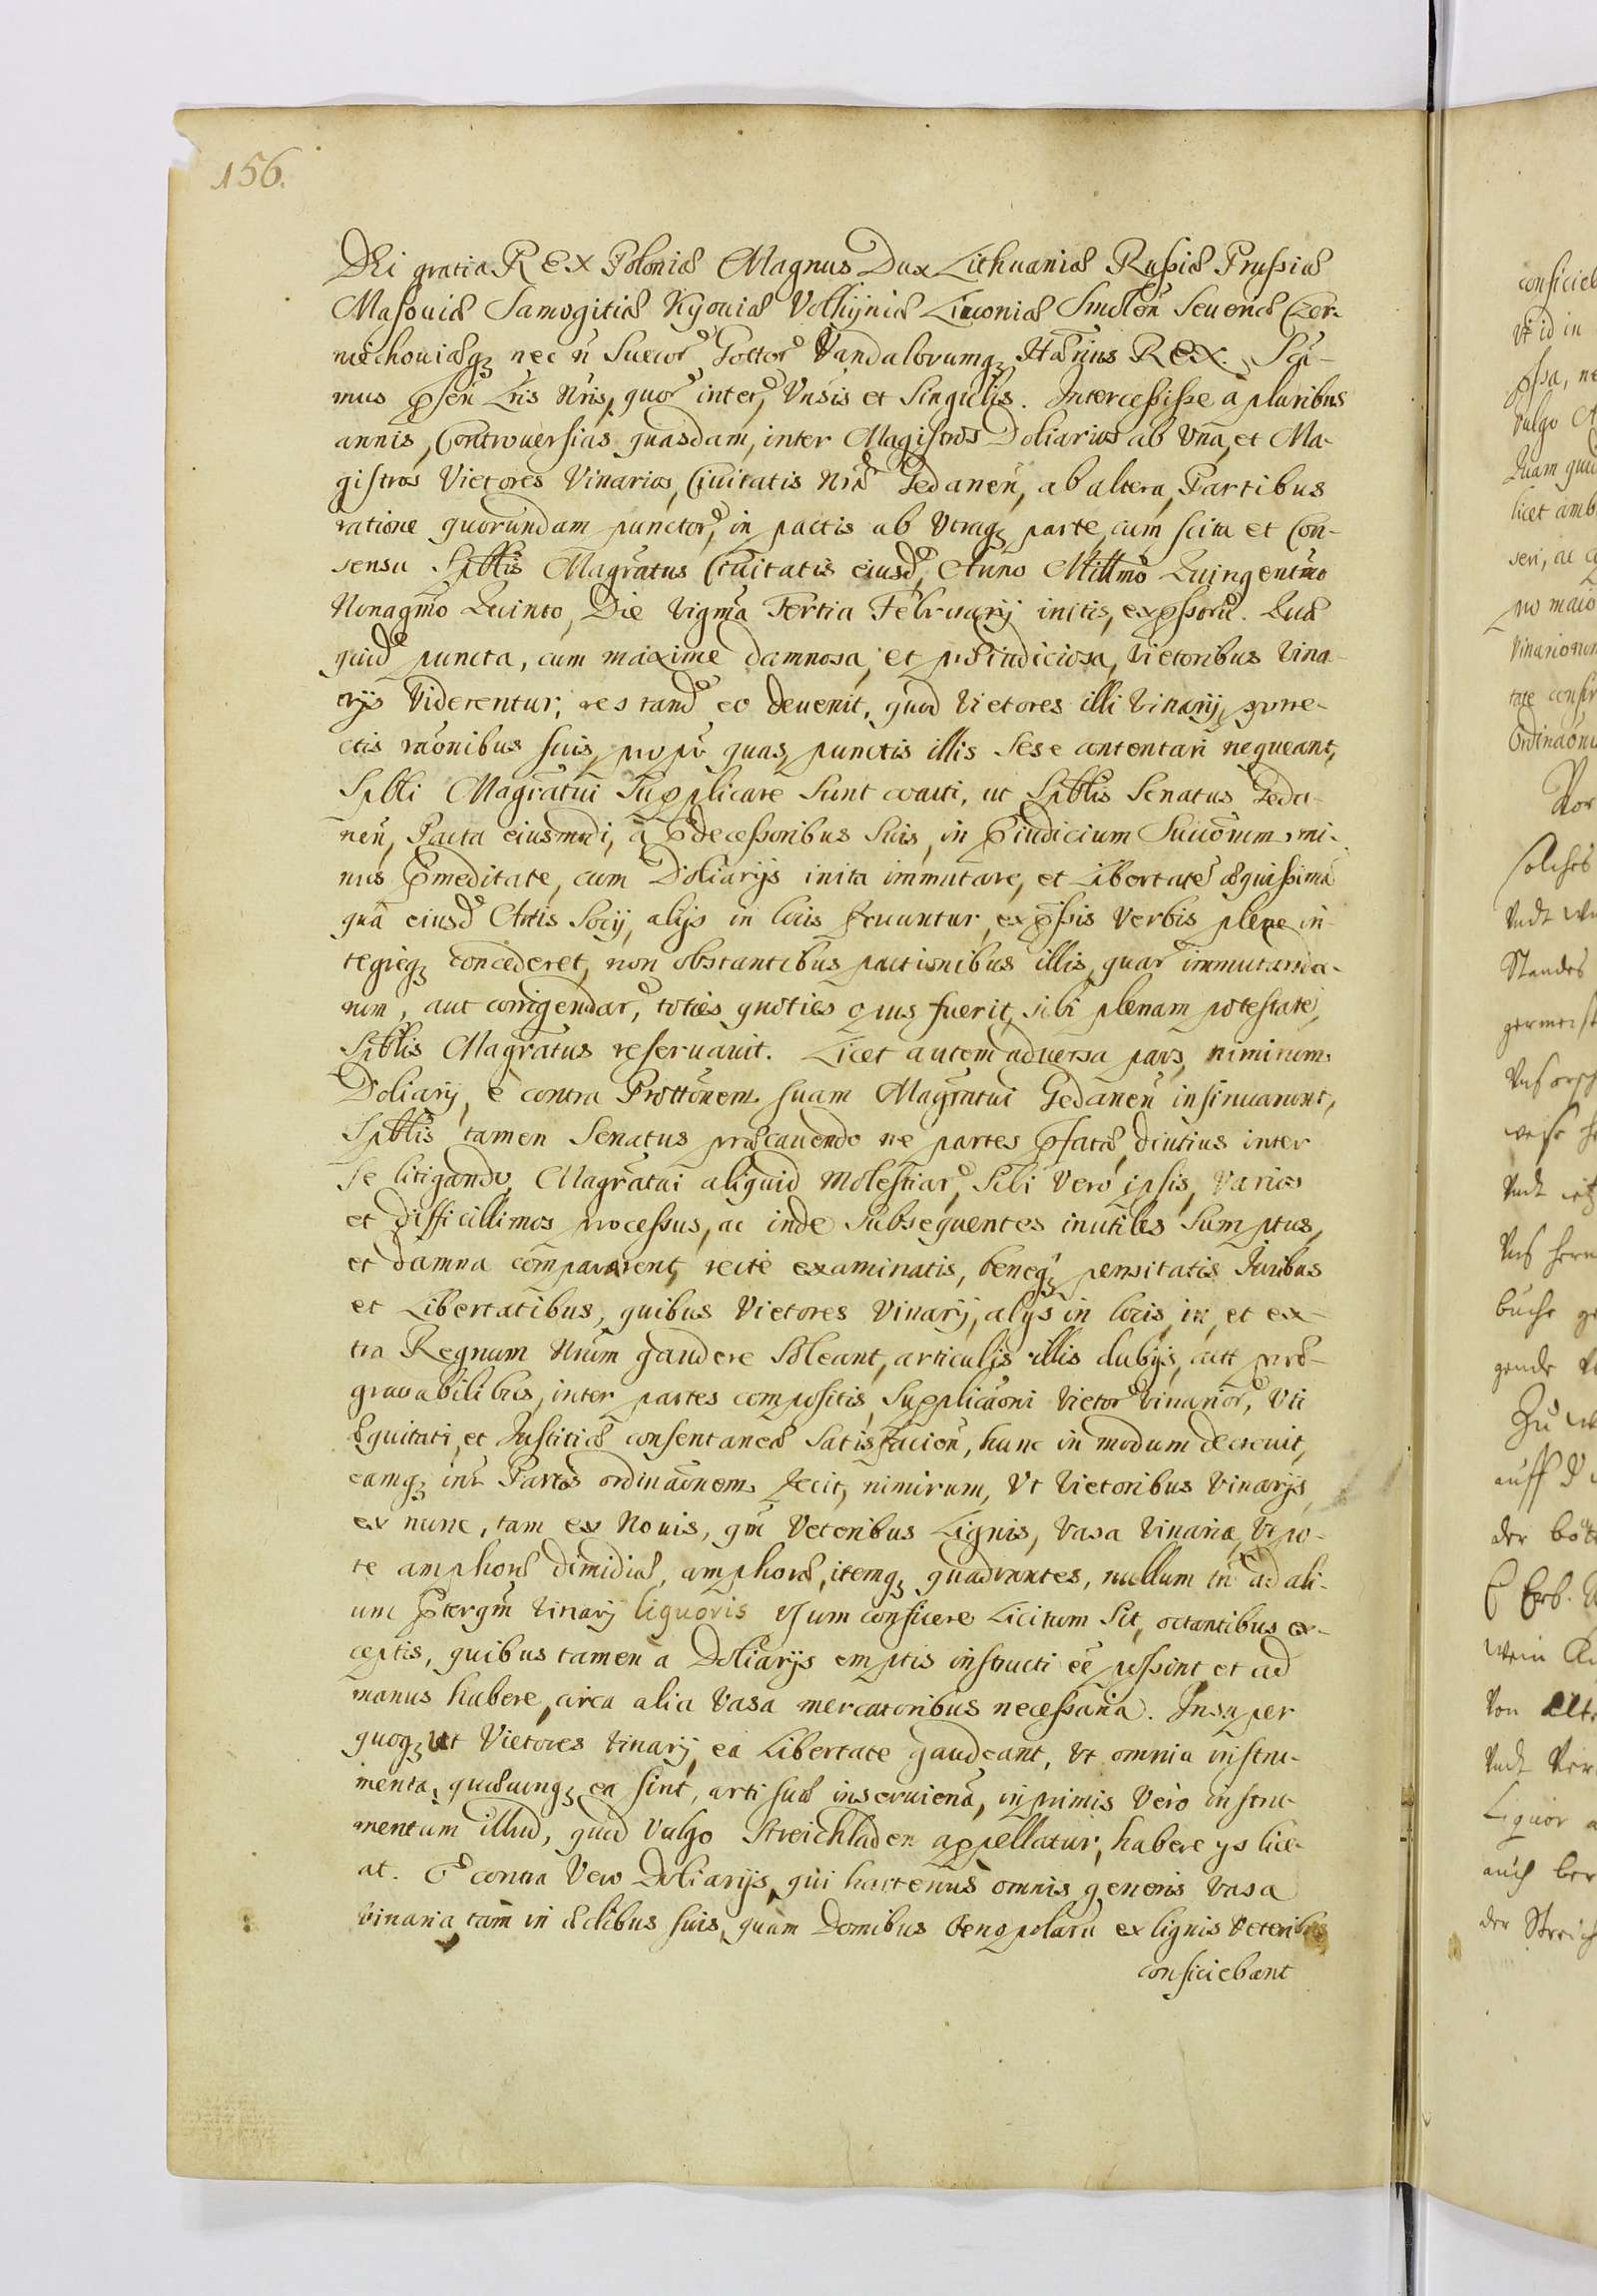 156.
DEi gratia REX Poloniæ Magnus Dux Lithuaniæ Rußiæ Prußiæ
Masouiæ Samogitiæ Kyouiæ Volhijniæ Liuoniæ Smolen̄ Seueriæ Czer-
niechouiæq3 nec n̄ Suecor̄ Gottor̄ Vandalorumq3 Hærius REX. Scī-
mus p̄sen̄ Lr̄is Nr̄is, quor̄ interē, Vn̄sis et Singulis. Interceßiße à pluribus
annis, Controuersias quasdam, inter Magistros Doliarios ab Vna, et Ma-
gistros Vietores Vinarios, Ciuitatis Nr̄æ Gedanen̄, ab altera, Partibus
ratione quorundam punctor̄, in pactis ab Vtraq3 parte, cum scitu et Con-
sensu Sp̄ttis Magr̄atus Ciuitatis eiusd̄, Anno Mittmō Quingentmō
Nonagmō Quinto, Die Vigmā Tertia Februarij initis, exp̄ssorū. Quæ
quid̄ puncta, cum maxime damnosa, et præiudiciosa, Vietoribus Vina-
rijs Viderentur, res tand̄ eo deuenit, quod Vietores illi Vinarij, porre-
ctis raōnibus suis, propr̄ quas, punctis illis sese contentari nequeant,
Sp̄tti Magr̄atui Supplicare Sunt coacti, ut Sp̄ttis Senatus Geda-
nen̄, Pacta eiusmodi, à p̄decessoribus Suis, in p̄iudicium Suiōrum, mi-
nus p̄meditate, cum Doliarijs inita immutare, et Libertatē æquißimā
quā eiusd̄ Artis Socij, alijs in locis fruuntur, exp̄ßis Verbis plene in-
tegreq3 concederet, non obstantibus pactionibus illis, quar̄ immutanda-
rum, aut corrigendar̄, toties quoties opus fuerit, sibi plenam potestatē,
Sp̄ttis Magr̄atus reseruauit. Licet autem aduersa pars, nimirum
Doliarij, è contra Prottōnem suam Magr̄atui Gedanen̄ insinuarunt,
Sp̄ttis tamen Senatus præcauendo ne partes p̄fatæ, diutius inter
se litigando, Magr̄atui aliquid Molestiar̄, Sibi Verò ipsis, Varios
et difficillimos processus, ac inde Subsequentes inutiles Sumptus,
et damna compararent, recte examinatis, beneq3 pensitatis Iuribus
et Libertatibus, quibus Vietores Vinarij, alijs in locis, in, et ex-
tra Regnum Nrūm gaudere Soleant, articulis illis dubijs, aut præ-
grauabilibus, inter partes compositis, Supplicaōni Vietor̄ Vinarior̄, Vti
Æquitati, et Iustitiæ consentaneæ Satisfacien̄, hunc in modum decreuit,
eamq3 int̄ Partes ordinaōnem fecit, nimirum, Vt Vietoribus Vinarijs,
ex nunc, tam ex Nouis, qm̄ Veteribus Lignis, Vasa Vinaria, Vtpo-
te amphoræ dimidiæ, amphoræ, itemq3 quadrantes, nullum tn̄ ad ali-
um p̄terqm̄ Vinarij liquoris usum conficere Licitum Sit, octantibus ex-
ceptis, quibus tamen a Doliarijs emptis instructi ēē poßint et ad
manus habere, circa alia Vasa mercatoribus neceßaria. Insuper
quoq3 ut Vietores Vinarij, ea Libertate gaudeant, Vt omnia instru-
menta, quæcunq3 ea sint, arti suæ inseruienā, inprimis Verò instru-
mentum illud, quod Vulgo Streichladen appellatur, habere ijs lice-
at. E contra Vero Doliarijs, qui hactenus omnis generis Vasa
Vinaria, tam in Ædibus suis, quam Domibus Oenopolarū ex lignis Veteribus
conficiebant